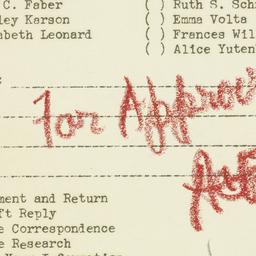 C. Faber ( ) Ruth S. Sch
ley Karson ( ) Emma Volta
abeth Leonard ( ) Frances Wil
( ) Alice Yuten
For Approv
ment and Return
ft Reply
e Correspondence
e Research